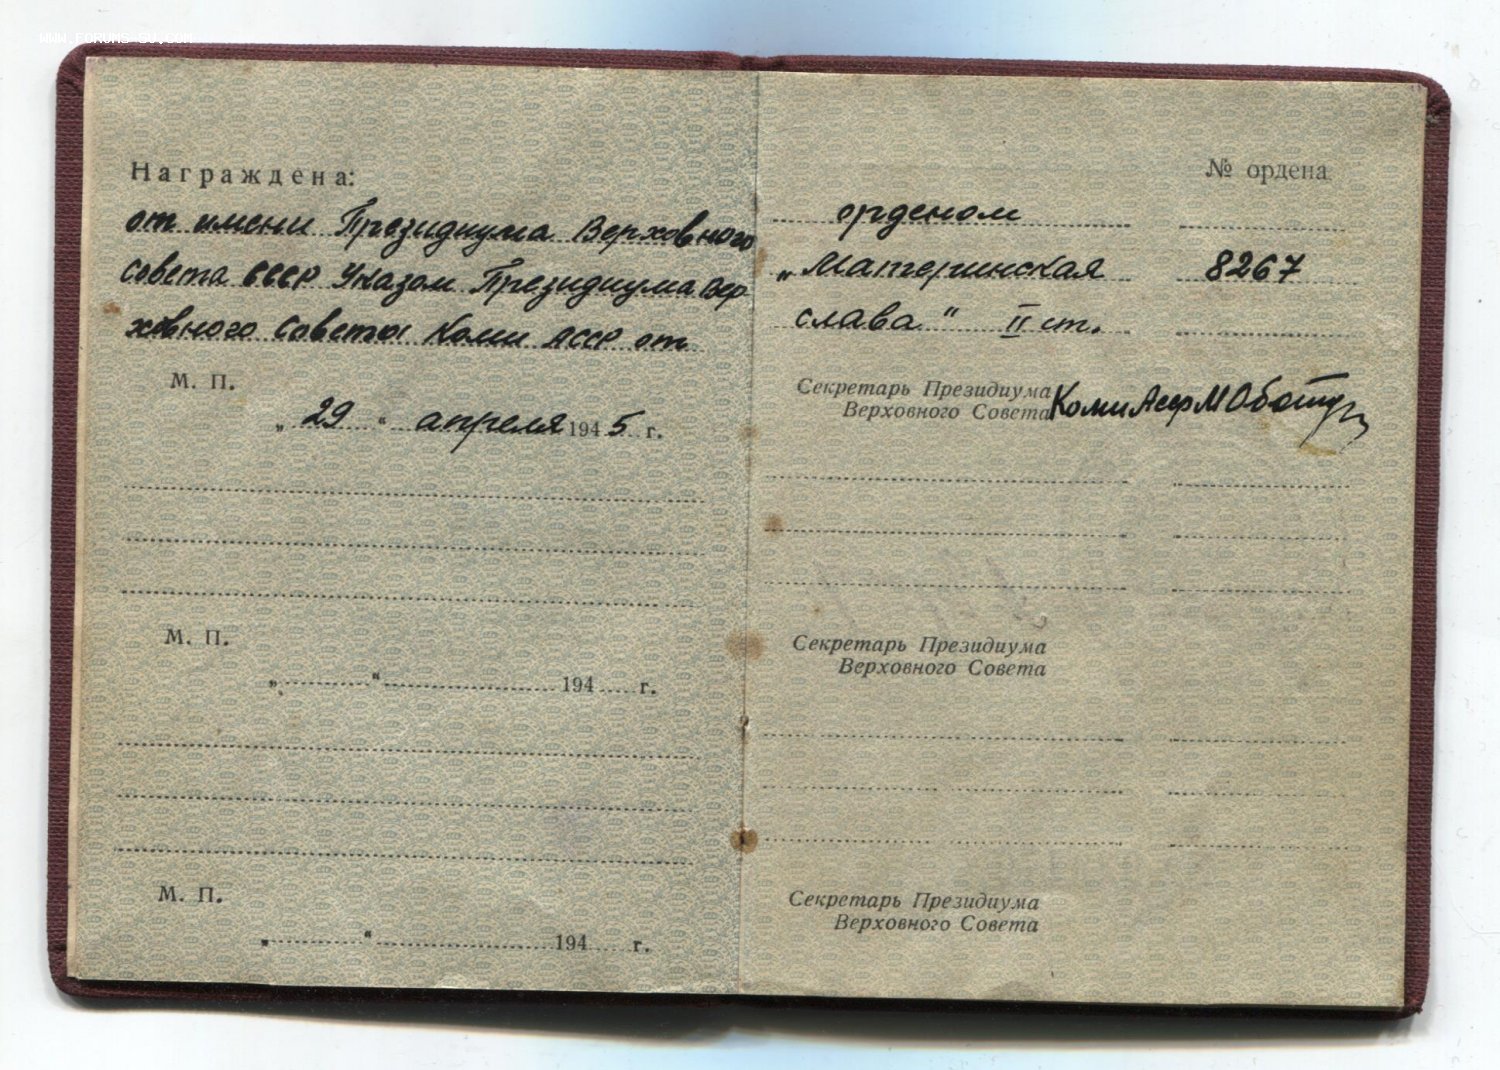 WWW.FORUMS-SU.COM
Награждена:
от имени Президиума Верховного
Совета СССР Указом Президиума Вер
ховного Совета Коми АССР от
М. П.
„ 29 “ апреля 1945 г.
М. П.
„ “ 194 г.
М. П.
„ “ 194 г.
№ ордена
орденом
„Материнская 8267
слава“ II ст.
Секретарь Президиума
Верховного Совета Коми АССР
Секретарь Президиума
Верховного Совета
Секретарь Президиума
Верховного Совета